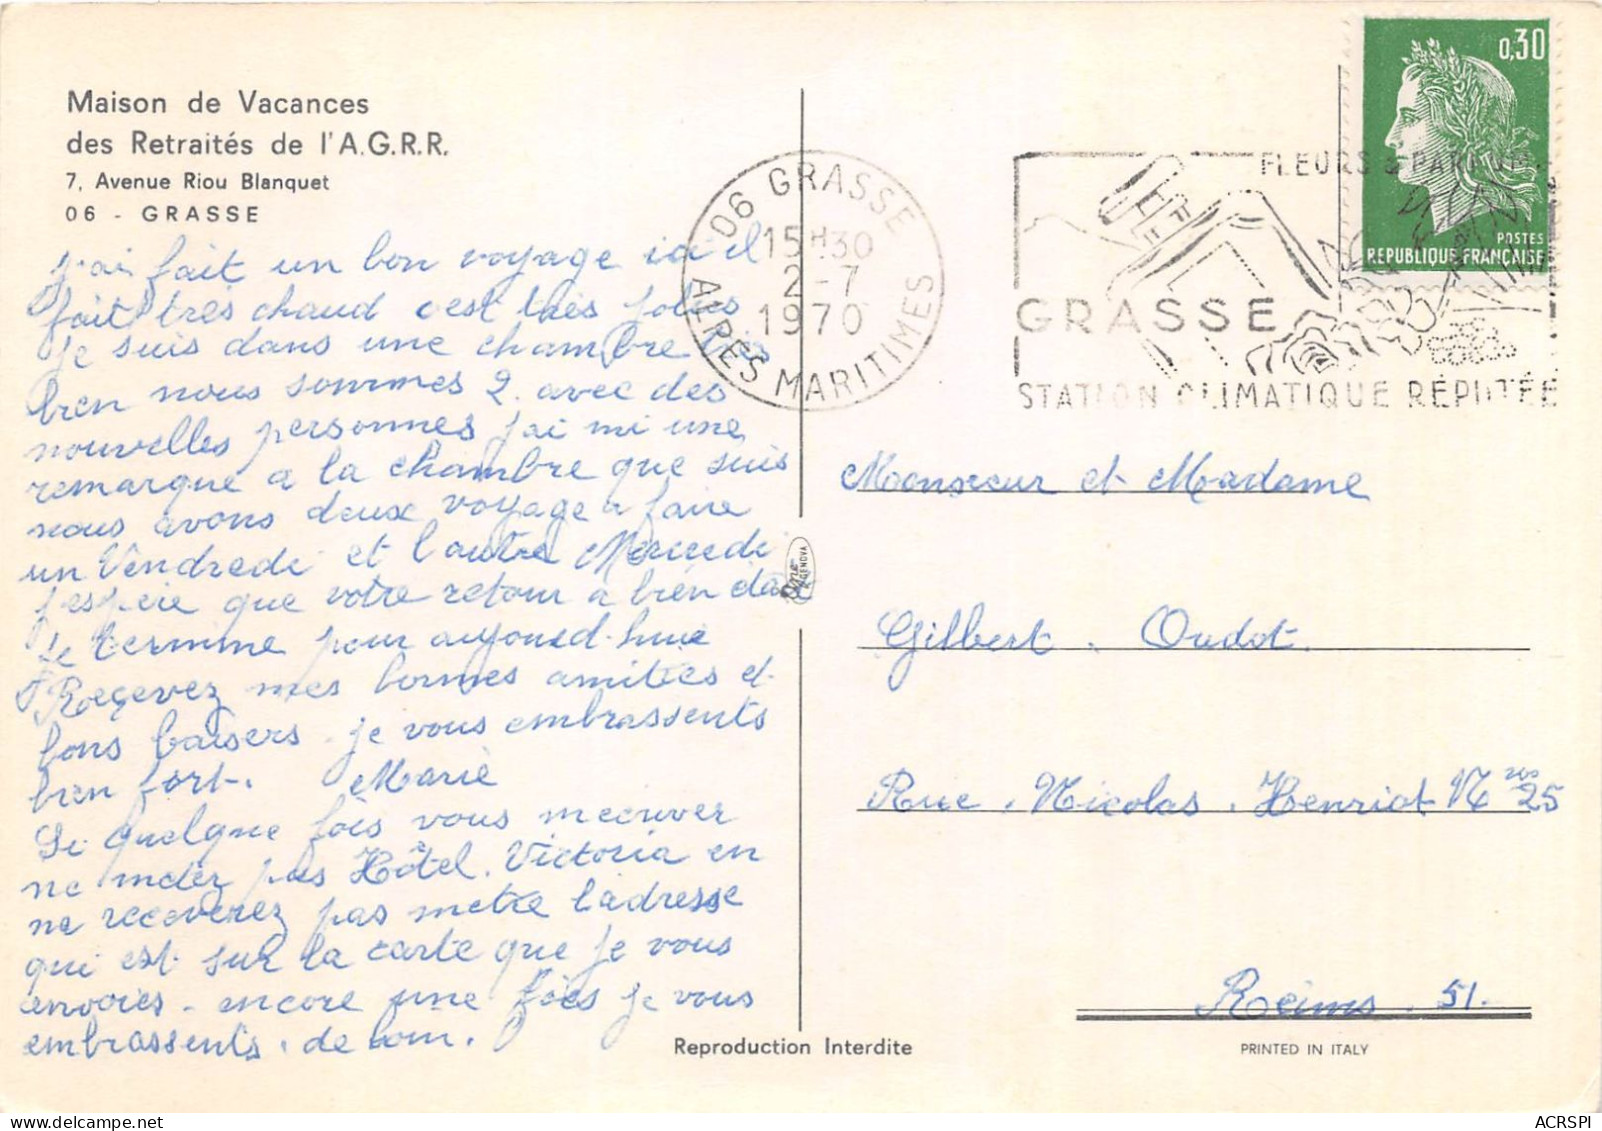 Maison de Vacances
des Retraités de l'A.G.R.R.
7, Avenue Riou Blanquet
06 - GRASSE
j'ai fait un bon voyage ici il
fait très chaud c'est très jolies
je suis dans une chambre très
bien nous sommes 2. avec des
nouvelles personnes j'ai mi une
remarque a la chambre que suis
nous avons deux voyage a faire
un Vendredi et l'autre Mercredi
j'espère que votre retour a bien
Je termine pour aujourd-huie
Reçevez mes bonnes amitiés et
bons baisers. je vous embrassents
bien fort. Marie
Si quelque fois vous
ne meter pas Hôtel. Victoria en
ne receverez pas metre l'adresse
qui est sur la carte que je vous
envoies - encore une foies je vous
embrassents. de loin.
06 GRASSE
15H30
2-7
1970
ALPES MARITIMES
FLEURS & PARFUMS
GRASSE
STATION CLIMATIQUE RÉPUTÉE
0,30
POSTES
REPUBLIQUE FRANÇAISE
Monsieur et Madame
Gilbert. Oudot.
Rue. Nicolas. Henriot N ros 25
Reims. 51.
GENOVA
Reproduction Interdite
PRINTED IN ITALY
ACRSPI